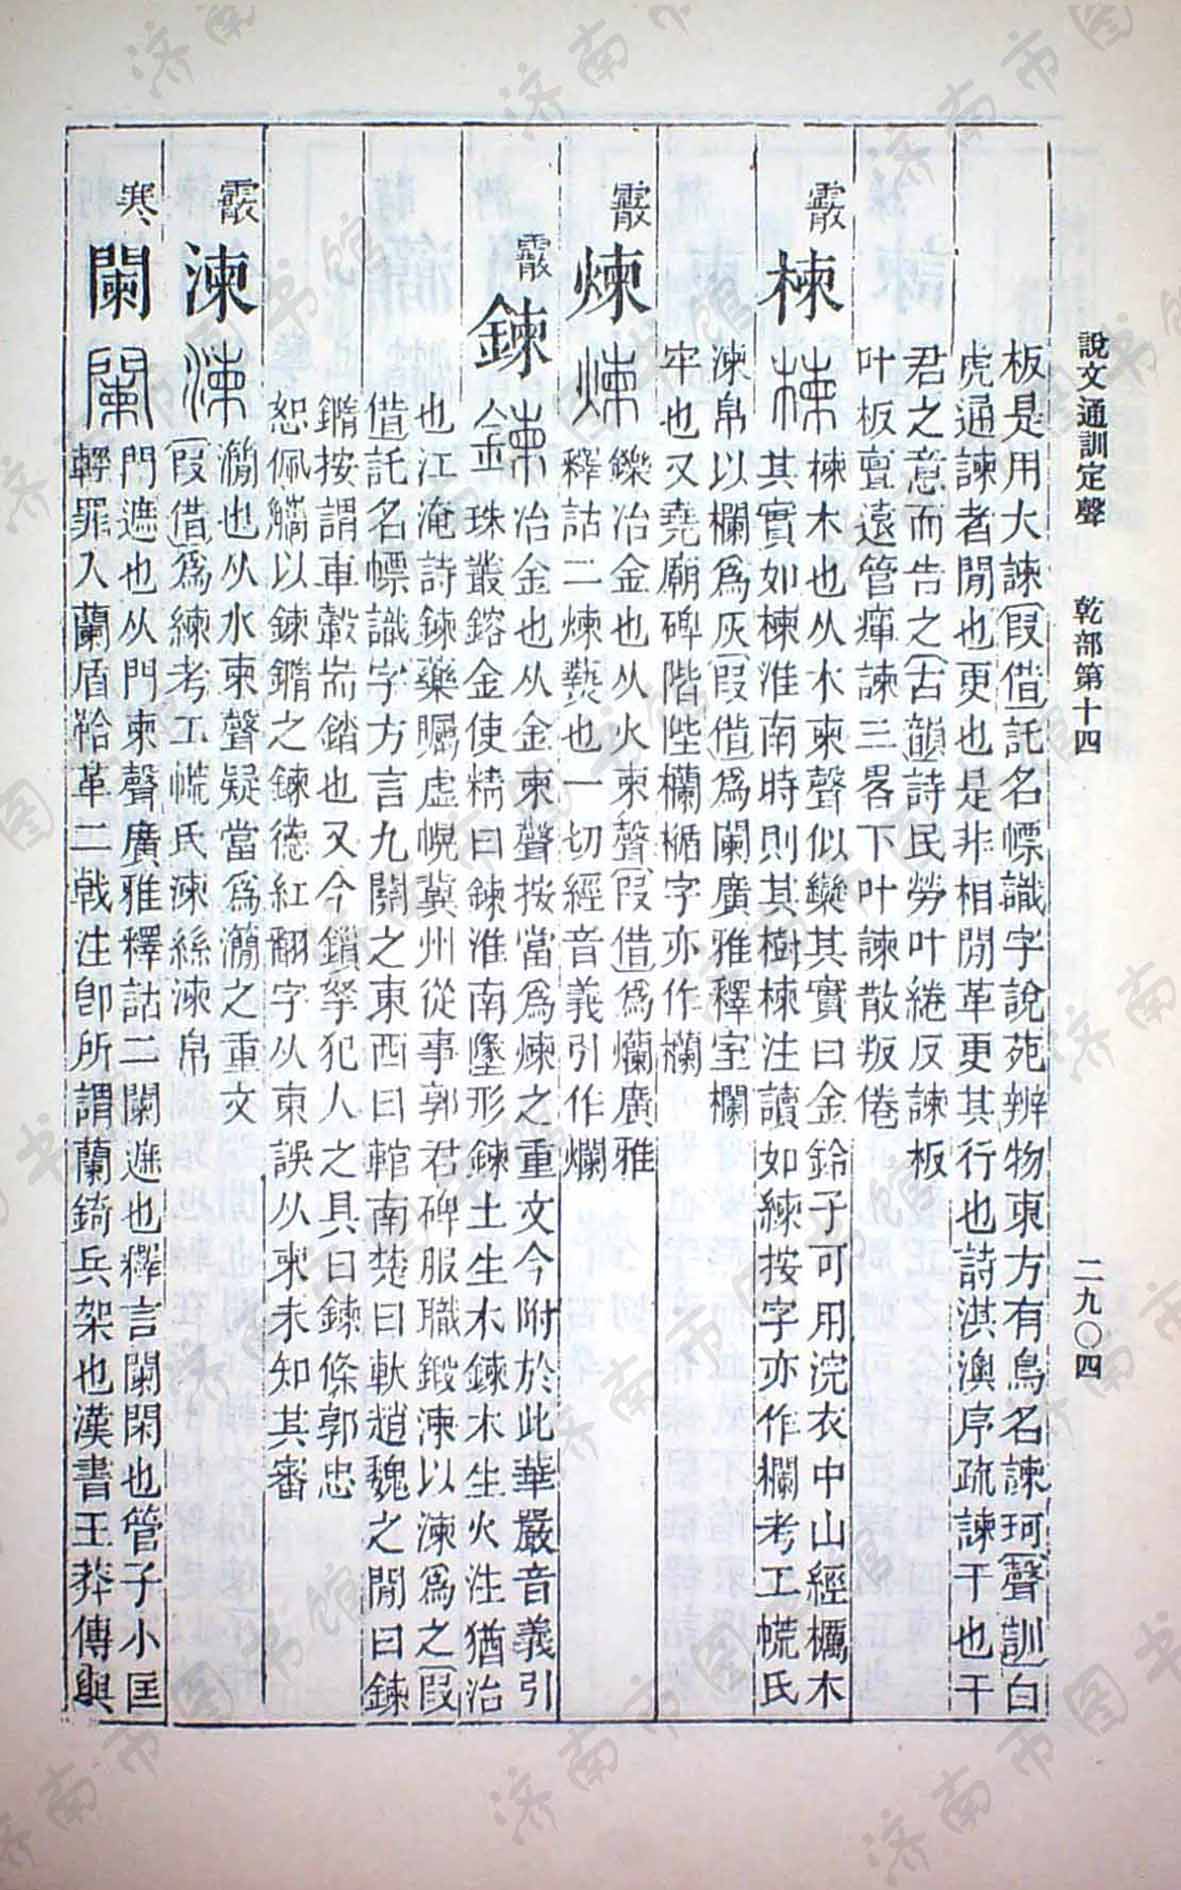 說文通訓定聲 乾部第十四 二九〇四
板是用大諫叚借託名幖識字說苑辨物東方有鳥名諫珂聲訓白
虎通諫者閒也更也是非相閒革更其行也詩淇澳序疏諫干也干
君之意而告之古韻詩民勞叶綣反諫板
叶板亶遠管癉諫三畧下叶諫散叛倦
霰 楝 楝木也从木柬聲似欒其實曰金鈴子可用浣衣中山經櫔木
其實如楝淮南時則其樹楝注讀如練按字亦作欄考工㡛氏
湅帛以欄爲灰叚借爲闌廣雅釋室欄
牢也又堯廟碑階陛欄楯字亦作欄
霰 煉 鑠冶金也从火柬聲叚借爲爛廣雅
釋詁二煉爇也一切經音義引作爛
霰 鍊 冶金也从金柬聲按當爲煉之重文今附於此華嚴音義引
珠叢鎔金使精曰鍊淮南墬形鍊土生木鍊木生火注猶治
也江淹詩鍊藥矚虛幌冀州從事郭君碑服職鍛湅以湅爲之叚
借託名幖識字方言九關之東西曰輨南楚曰軑趙魏之閒曰鍊
鐗按謂車轂耑錔也又今鎖拏犯人之具曰鍊條郭忠
恕佩觿以鍊鐗之鍊德紅翻字从東誤从柬未知其審
霰 湅 㶕也从水柬聲疑當爲㶕之重文
叚借爲練考工㡛氏湅絲湅帛
寒 闌 門遮也从門柬聲廣雅釋詁二闌遮也釋言闌閑也管子小匡
輕罪入蘭盾鞈革二戟注卽所謂蘭錡兵架也漢書王莽傳與
济南市图书馆